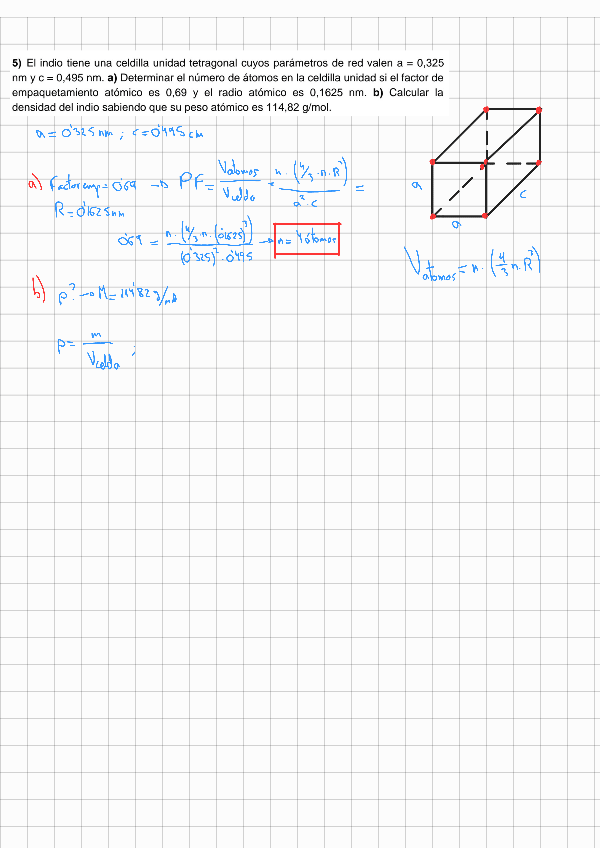 5) El indio tiene una celdilla unidad tetragonal cuyos parámetros de red valen a = 0,325
nm y c = 0,495 nm. a) Determinar el número de átomos en la celdilla unidad si el factor de
empaquetamiento atómico es 0,69 y el radio atómico es 0,1625 nm. b) Calcular la
densidad del indio sabiendo que su peso atómico es 114,82 g/mol.
a = 0'325 nm ; c = 0'495 cm
a) Factor emp = 0'69 → PF = Vatomos / Vcelda = n · (4/3 · π · R³) / a² · c =
R = 0'1625 nm
0'69 = n · (4/3 · π · (0'1625)³) / (0'325)² · 0'495 → n = 4 átomos
a
c
a
Vátomos = n · (4/3 π · R³)
b) ρ? → M = 114'82 g/mol
ρ = m / Vcelda ;